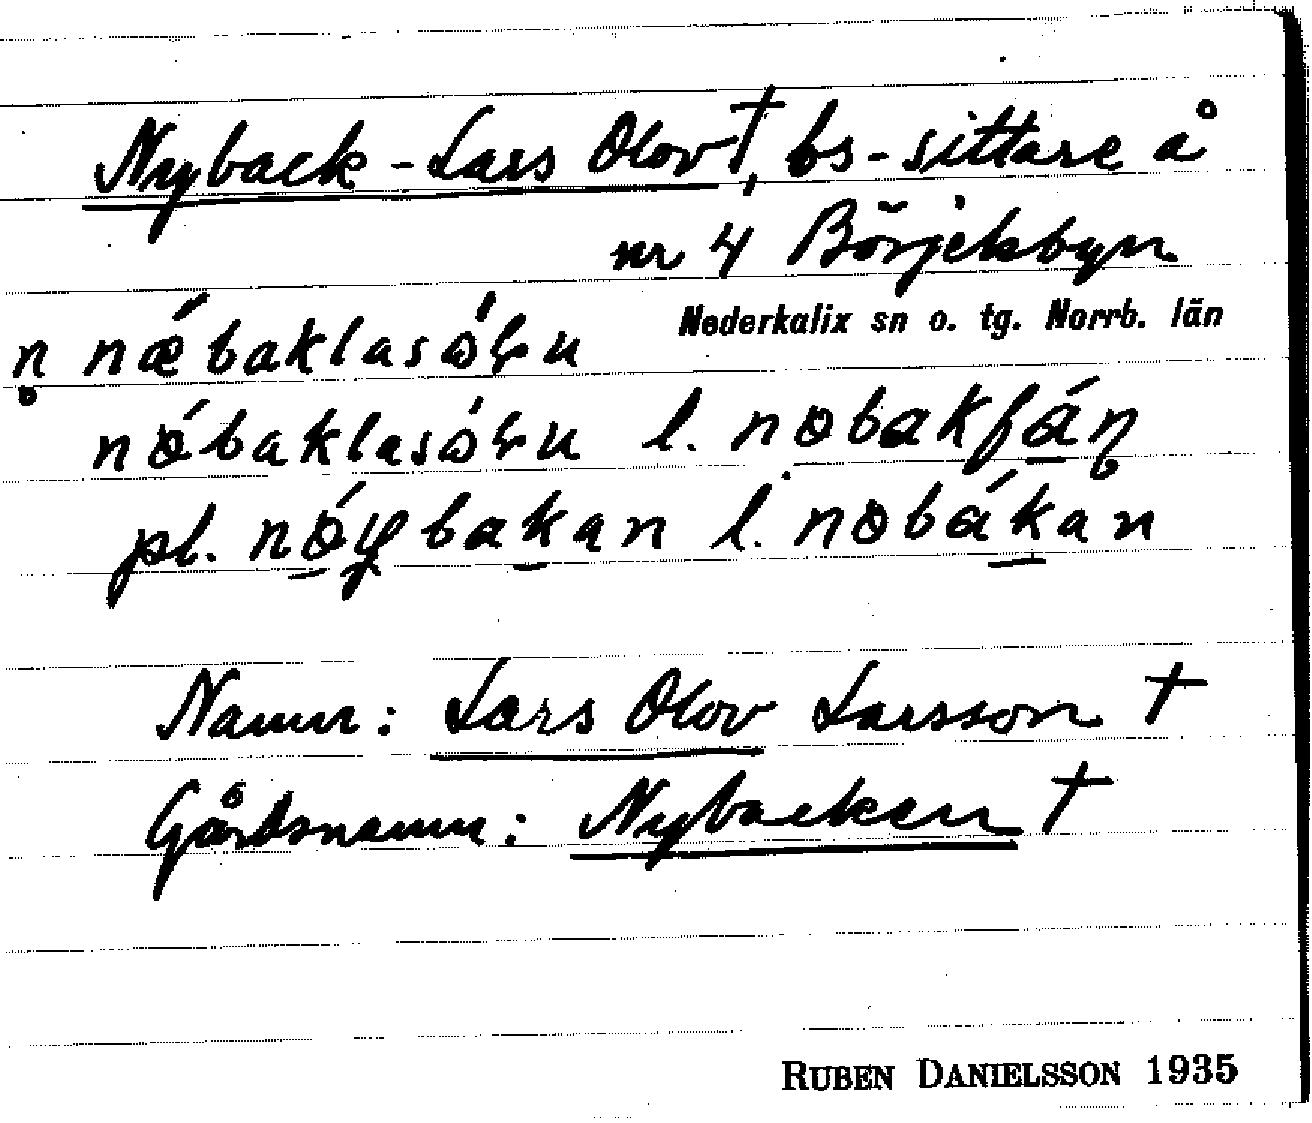 Nyback-Lars Olov †, bs-sittare å
nr 4 Börjelsbyn
Nederkalix sn o. tg. Norrb. län
n̥ nǽbaklasólu
nǿbaklasólu l. nøbakfán
pl. nǿybakan l. nøbákan
Namn: Lars Olov Larsson †
Gårdsnamn: Nybacken †
RUBEN DANIELSSON 1935